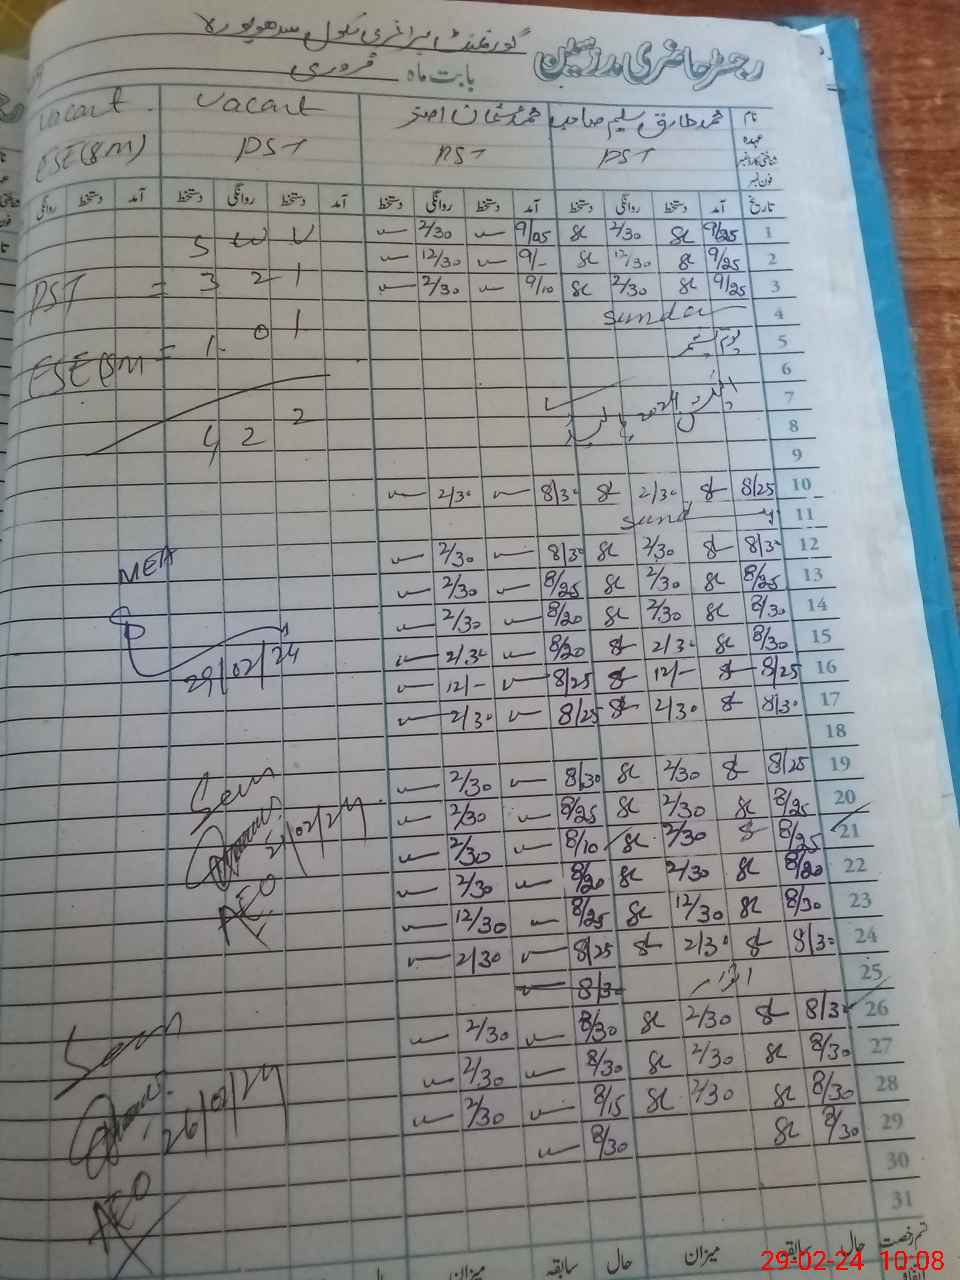 گورنمنٹ پرائمری سکول سدھوپورہ
رجسٹر حاضری مدرسین
بابت ماہ فروری
نام محمد طارق سلیم صاحب محمد عثمان اصغر Vacant Vacant
عہدہ PST PST PST ESE(SM)
فون نمبر
تاریخ آمد دستخط روانگی دستخط آمد دستخط روانگی دستخط آمد دستخط روانگی دستخط آمد دستخط روانگی
1 9/25 2/30 9/05 2/30 S W V
2 9/25 12/30 9/- 12/30
3 9/25 2/30 9/10 2/30 PST = 3 2 1
4 Sunday
5 ESE(SM = 1 0 1
6
7 2024
8 4 2 2
9
10 8/25 2/30 8/30 2/30
11 Sunday
12 8/30 2/30 8/30 2/30 MEA
13 8/25 2/30 8/25 2/30
14 8/30 2/30 8/20 2/30
15 8/30 2/30 8/20 2/30 29/02/24
16 8/25 12/- 8/25 12/-
17 8/30 2/30 8/25 2/30
18
19 8/25 2/30 8/30 2/30 Seen
20 8/25 2/30 8/25 2/30
21 8/25 2/30 8/10 2/30 21/02/24
22 8/20 2/30 8/20 2/30 AEO
23 8/30 12/30 8/25 12/30
24 8/30 2/30 8/25 2/30
25 اتوار 8/30
26 8/30 2/30 8/30 2/30 Seen
27 8/30 2/30 8/30 2/30
28 8/30 2/30 8/15 2/30 26/02/24
29 8/30 8/30
30 AEO
31
قسم رخصت حال سابقہ میزان حال سابقہ میزان
29-02-24 10:08